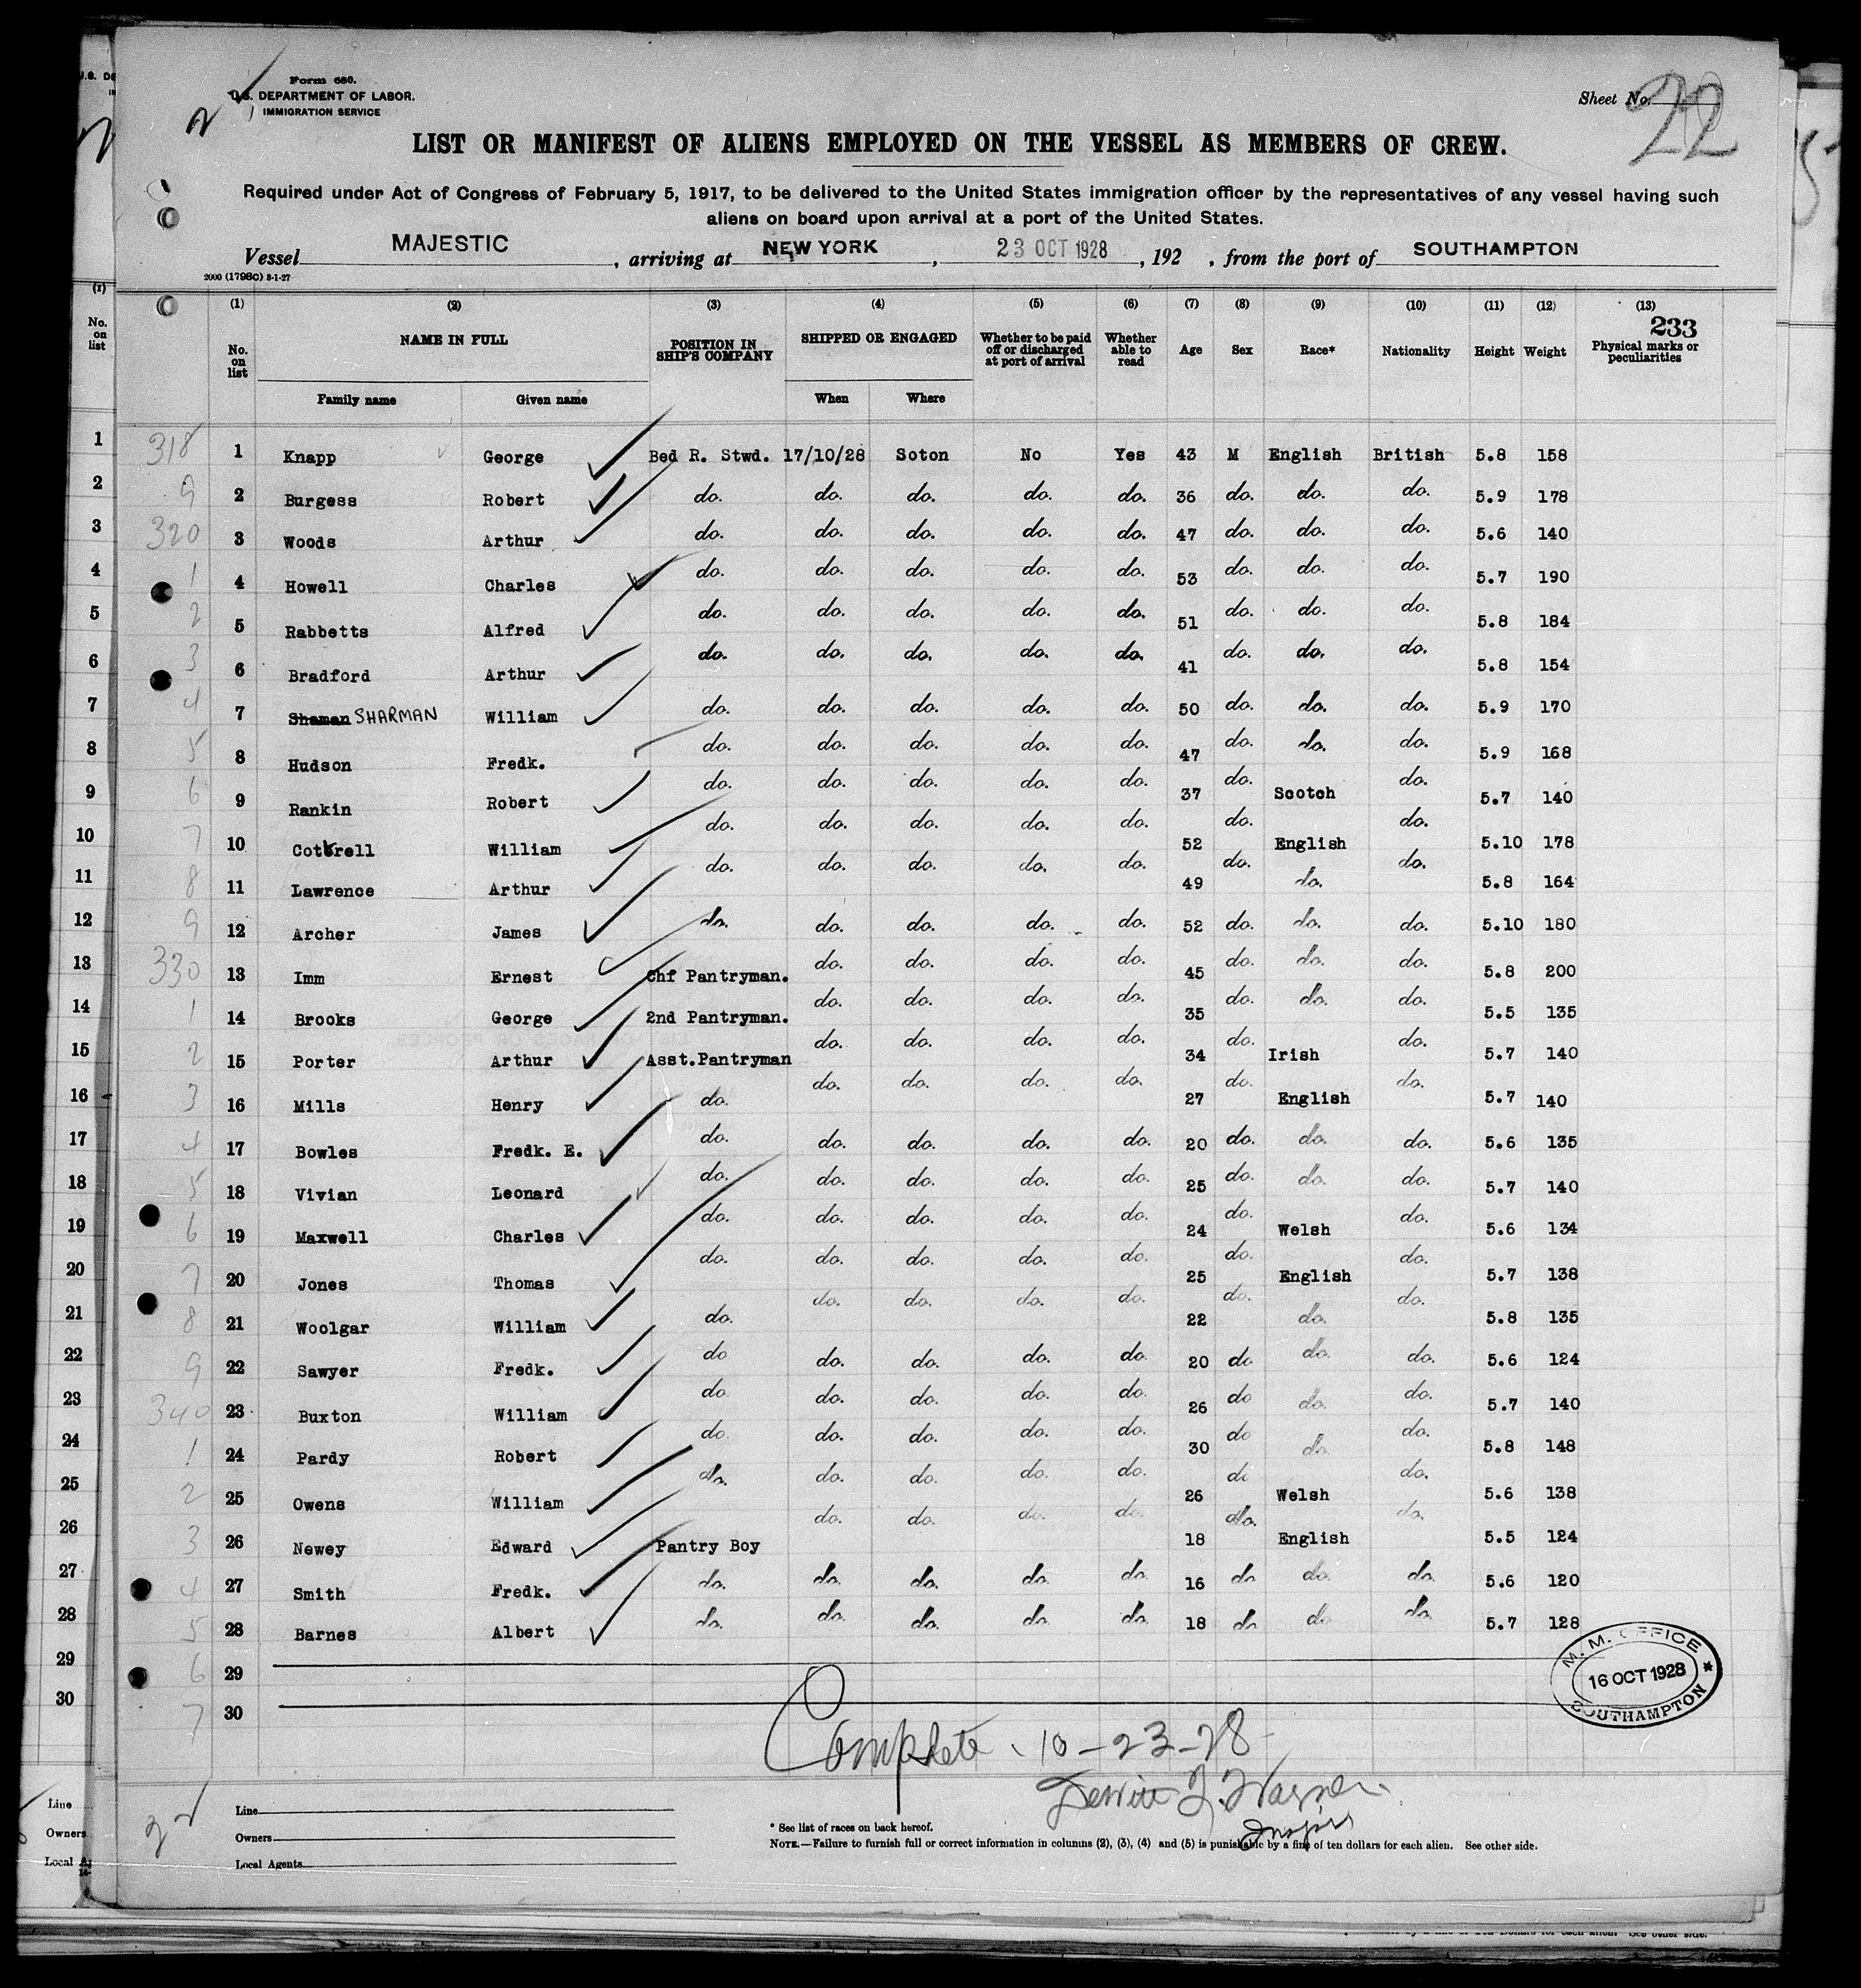 Form 680.
U.S. DEPARTMENT OF LABOR.
IMMIGRATION SERVICE
Sheet No. 22
LIST OR MANIFEST OF ALIENS EMPLOYED ON THE VESSEL AS MEMBERS OF CREW.
Required under Act of Congress of February 5, 1917, to be delivered to the United States immigration officer by the representatives of any vessel having such
aliens on board upon arrival at a port of the United States.
Vessel MAJESTIC, arriving at NEW YORK, 23 OCT 1928, 192 , from the port of SOUTHAMPTON
2000 (1798c) 8-1-27
(1) (2) (3) (4) (5) (6) (7) (8) (9) (10) (11) (12) (13)
233
No. on list NAME IN FULL POSITION IN SHIP'S COMPANY SHIPPED OR ENGAGED Whether to be paid off or discharged at port of arrival Whether able to read Age Sex Race* Nationality Height Weight Physical marks or peculiarities
Family name Given name When Where
318 1 Knapp George Bed R. Stwd. 17/10/28 Soton No Yes 43 M English British 5.8 158
9 2 Burgess Robert do. do. do. do. do. 36 do. do. do. 5.9 178
320 3 Woods Arthur do. do. do. do. do. 47 do. do. do. 5.6 140
1 4 Howell Charles do. do. do. do. do. 53 do. do. do. 5.7 190
2 5 Rabbetts Alfred do. do. do. do. do. 51 do. do. do. 5.8 184
3 6 Bradford Arthur do. do. do. do. do. 41 do. do. do. 5.8 154
4 7 Shaman SHARMAN William do. do. do. do. do. 50 do. do. do. 5.9 170
5 8 Hudson Fredk. do. do. do. do. do. 47 do. do. do. 5.9 168
6 9 Rankin Robert do. do. do. do. do. 37 do. Scotch do. 5.7 140
7 10 Cotterell William do. do. do. do. do. 52 do. English do. 5.10 178
8 11 Lawrence Arthur do. do. do. do. do. 49 do. do. do. 5.8 164
9 12 Archer James do. do. do. do. do. 52 do. do. do. 5.10 180
330 13 Imm Ernest Chf Pantryman. do. do. do. do. 45 do. do. do. 5.8 200
1 14 Brooks George 2nd Pantryman. do. do. do. do. 35 do. do. do. 5.5 135
2 15 Porter Arthur Asst.Pantryman do. do. do. do. 34 do. Irish do. 5.7 140
3 16 Mills Henry do. do. do. do. do. 27 do. English do. 5.7 140
4 17 Bowles Fredk. E. do. do. do. do. do. 20 do. do. do. 5.6 135
5 18 Vivian Leonard do. do. do. do. do. 25 do. do. do. 5.7 140
6 19 Maxwell Charles do. do. do. do. do. 24 do. Welsh do. 5.6 134
7 20 Jones Thomas do. do. do. do. do. 25 do. English do. 5.7 138
8 21 Woolgar William do. do. do. do. do. 22 do. do. do. 5.8 135
9 22 Sawyer Fredk. do do. do. do. do. 20 do do. do. 5.6 124
340 23 Buxton William do do. do. do. do. 26 do do. do. 5.7 140
1 24 Pardy Robert do. do. do. do. do. 30 do do. do. 5.8 148
2 25 Owens William do. do. do. do. do. 26 do Welsh do. 5.6 138
3 26 Newey Edward Pantry Boy do. do. do. do. 18 do. English do. 5.5 124
4 27 Smith Fredk. do. do. do. do. do. 16 do do. do. 5.6 120
5 28 Barnes Albert do. do. do. do. do. 18 do do. do. 5.7 128
6 29
7 30
M.M. OFFICE
16 OCT 1928
SOUTHAMPTON
Complete 10-23-28
Line
Owners
Local Agents
* See list of races on back hereof.
NOTE.—Failure to furnish full or correct information in columns (2), (3), (4) and (5) is punishable by a fine of ten dollars for each alien. See other side.